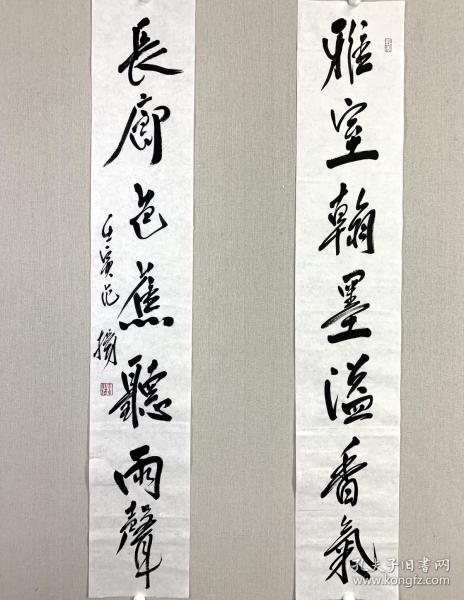 雅室翰墨溢香氣
長廊芭蕉聽雨聲
壬寅
孔夫子旧书网
www.kongfz.com